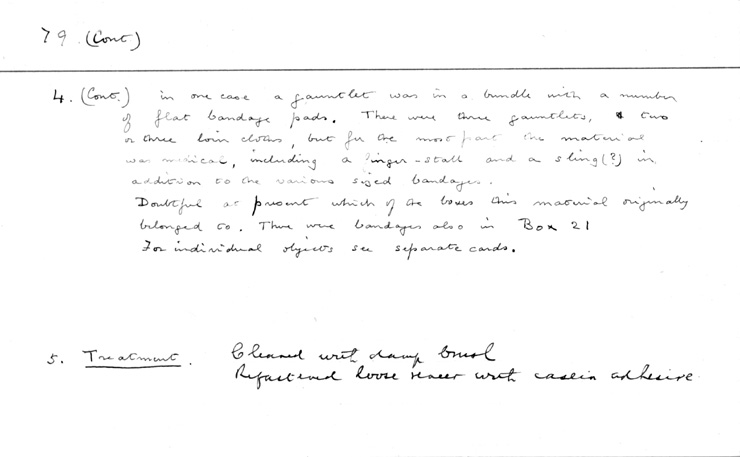 79 (Cont)
4. (Cont.) in one case a gauntlet was in a bundle with a number
of flat bandage pads. There were three gauntlets, & two
or three loin cloths, but for the most part the material
was medical, including a finger-stall and a sling(?) in
addition to the various sized bandages.
Doubtful at present which of the boxes this material originally
belonged to. There were bandages also in Box 21
For individual objects see separate cards.
5. Treatment. Cleaned with damp brush
Refastened loose veneer with casein adhesive